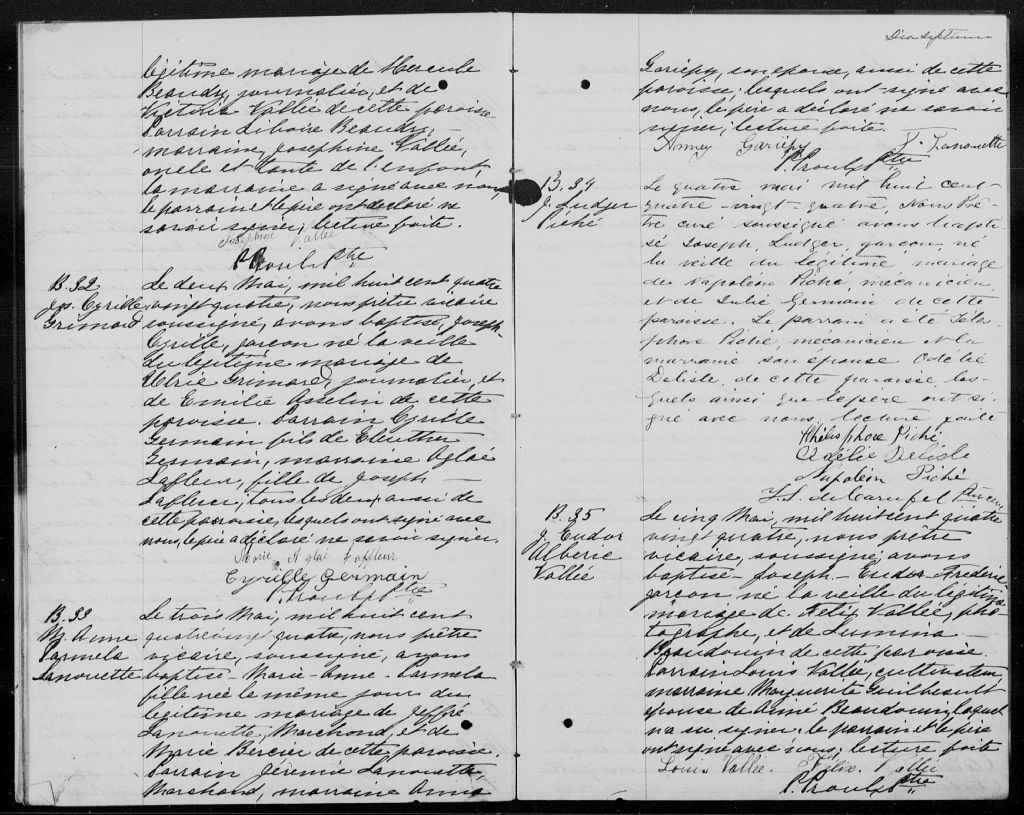 légitime mariage de Hercule
Beaudry, journalier, et de
Victoria Vallée de cette paroisse
Parrain Liboire Beaudry, —
marraine, Josephine Vallée,
oncle et tante de l'enfant,
la marraine a signé avec nous
le parrain et le père ont déclaré ne
savoir signer, lecture faite.
Josephine Vallée
P. Proulx Ptre
B. 32
Jos. Cyrille
Grimard
Le deux Mai, mil huit cent quatre
vingt quatre, nous prêtre vicaire
soussigné, avons baptisé, Joseph
Cyrille, garçon né la veille
du légitime mariage de
Ulric Grimard, journalier, et
de Emilie Asselin de cette
paroisse. Parrain Cyrille
Germain fils de Eleuther
Germain, marraine Aglaé
Lafleur, fille de Joseph —
Lafleur, tous les deux aussi de
cette paroisse, lesquels ont signé avec
nous, le père a déclaré ne savoir signer.
Marie Aglaé Laffleur
Cyrille Germain
P. Proulx Ptre
B. 33
M. Anne
Parmela
Lanouette
Le trois Mai, mil huit cent
quatre vingt quatre, nous prêtre
vicaire, soussigné, avons
baptisé - Marie - Anne - Parmela
fille née le même jour du
légitime mariage de Jeffré
Lanouette, Marchand, et de
Marie Bercier de cette paroisse.
Parrain Jérémie Lanouette,
Marchand, marraine Anna
Dix septième
Gariépy, son épouse, aussi de cette
paroisse: lesquels ont signé avec
nous, le père a déclaré ne savoir
signer, lecture faite.
Anney Gariépy J. Lanouette
P. Proulx Ptre
B. 34
J. Ludger
Piché
Le quatre mai mil huit cent
quatre-vingt-quatre, Nous Prê-
tre curé soussigné avons bapti-
sé Joseph, Ludger, garçon né
la veille du légitime mariage
de Napoléon Piché, mécanicien,
et de Julie Germain de cette
paroisse. Le parrain a été Téles-
phore Piché, mécanicien et la
marraine son épouse Odélie
Delisle, de cette paroisse, les-
quels ainsi que le père ont si-
gné avec nous, lecture faite
Thélesphore Piché
Odélie Delisle
Napoléon Piché
Ptre curé
B. 35
J. Eudor
Alberic
Vallée
Le cinq Mai, mil huit cent quatre
vingt quatre, nous prêtre
vicaire, soussigné, avons
baptisé - Joseph - Eudor - Frederic
garçon né la veille du légitime
mariage de Felix Vallée, pho-
tographe, et de Lumina —
Beaudouin de cette paroisse.
Parrain Louis Vallée, cultivateur,
marraine Marguerite Guilbeault
épouse de Aimé Beaudouin, laquelle
n'a su signer; le parrain et le père
ont signé avec nous; lecture faite
Louis Vallée. Félix Vallée
P. Proulx Ptre